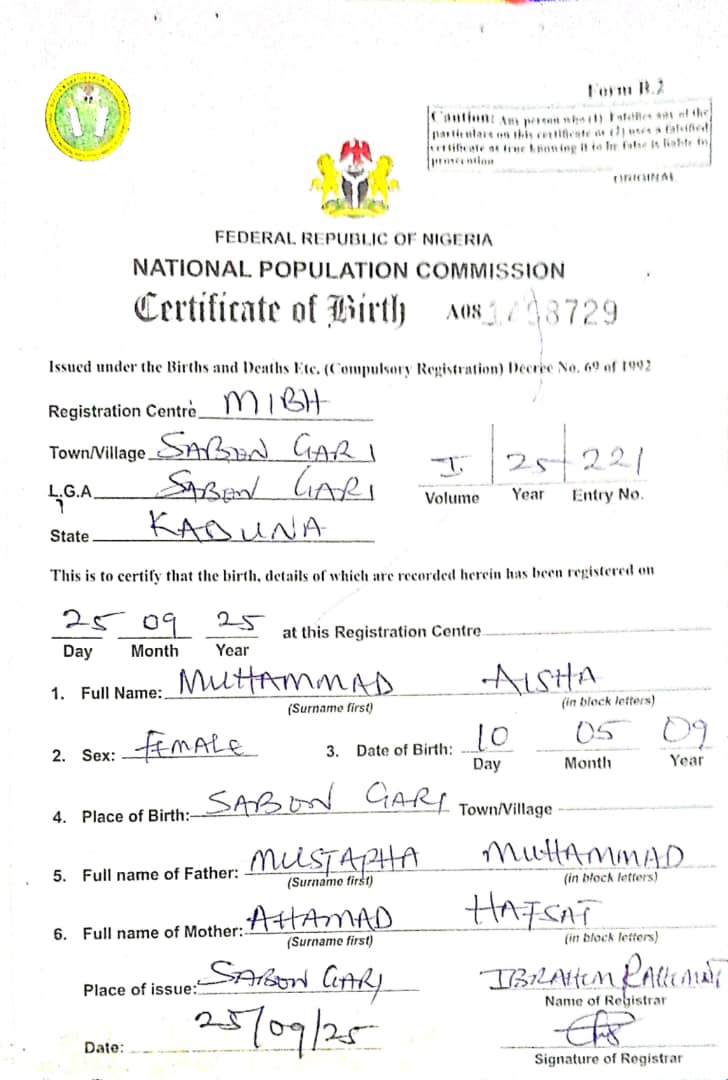 Form B.2
Caution: Any person who (1) Falsifies any of the
particulars on this certificate or (2) uses a falsified
certificate as true knowing it to be false is liable to
prosecution
ORIGINAL
FEDERAL REPUBLIC OF NIGERIA
NATIONAL POPULATION COMMISSION
Certificate of Birth A08 8729
Issued under the Births and Deaths Etc. (Compulsory Registration) Decree No. 69 of 1992
Registration Centre MIBH
Town/Village SABON GARI
L.G.A SABON GARI
I 25 221
Volume Year Entry No.
State KADUNA
This is to certify that the birth, details of which are recorded herein has been registered on
25 09 25 at this Registration Centre
Day Month Year
1. Full Name: MUHAMMAD AISHA
(Surname first) (in block letters)
2. Sex: FEMALE 3. Date of Birth: 10 05 09
Day Month Year
4. Place of Birth: SABON GARI Town/Village
5. Full name of Father: MUSTAPHA MUHAMMAD
(Surname first) (in block letters)
6. Full name of Mother: AHAMAD HAFSAT
(Surname first) (in block letters)
Place of issue: SABON GARI IBRAHIM
Name of Registrar
Date: 25/09/25
Signature of Registrar